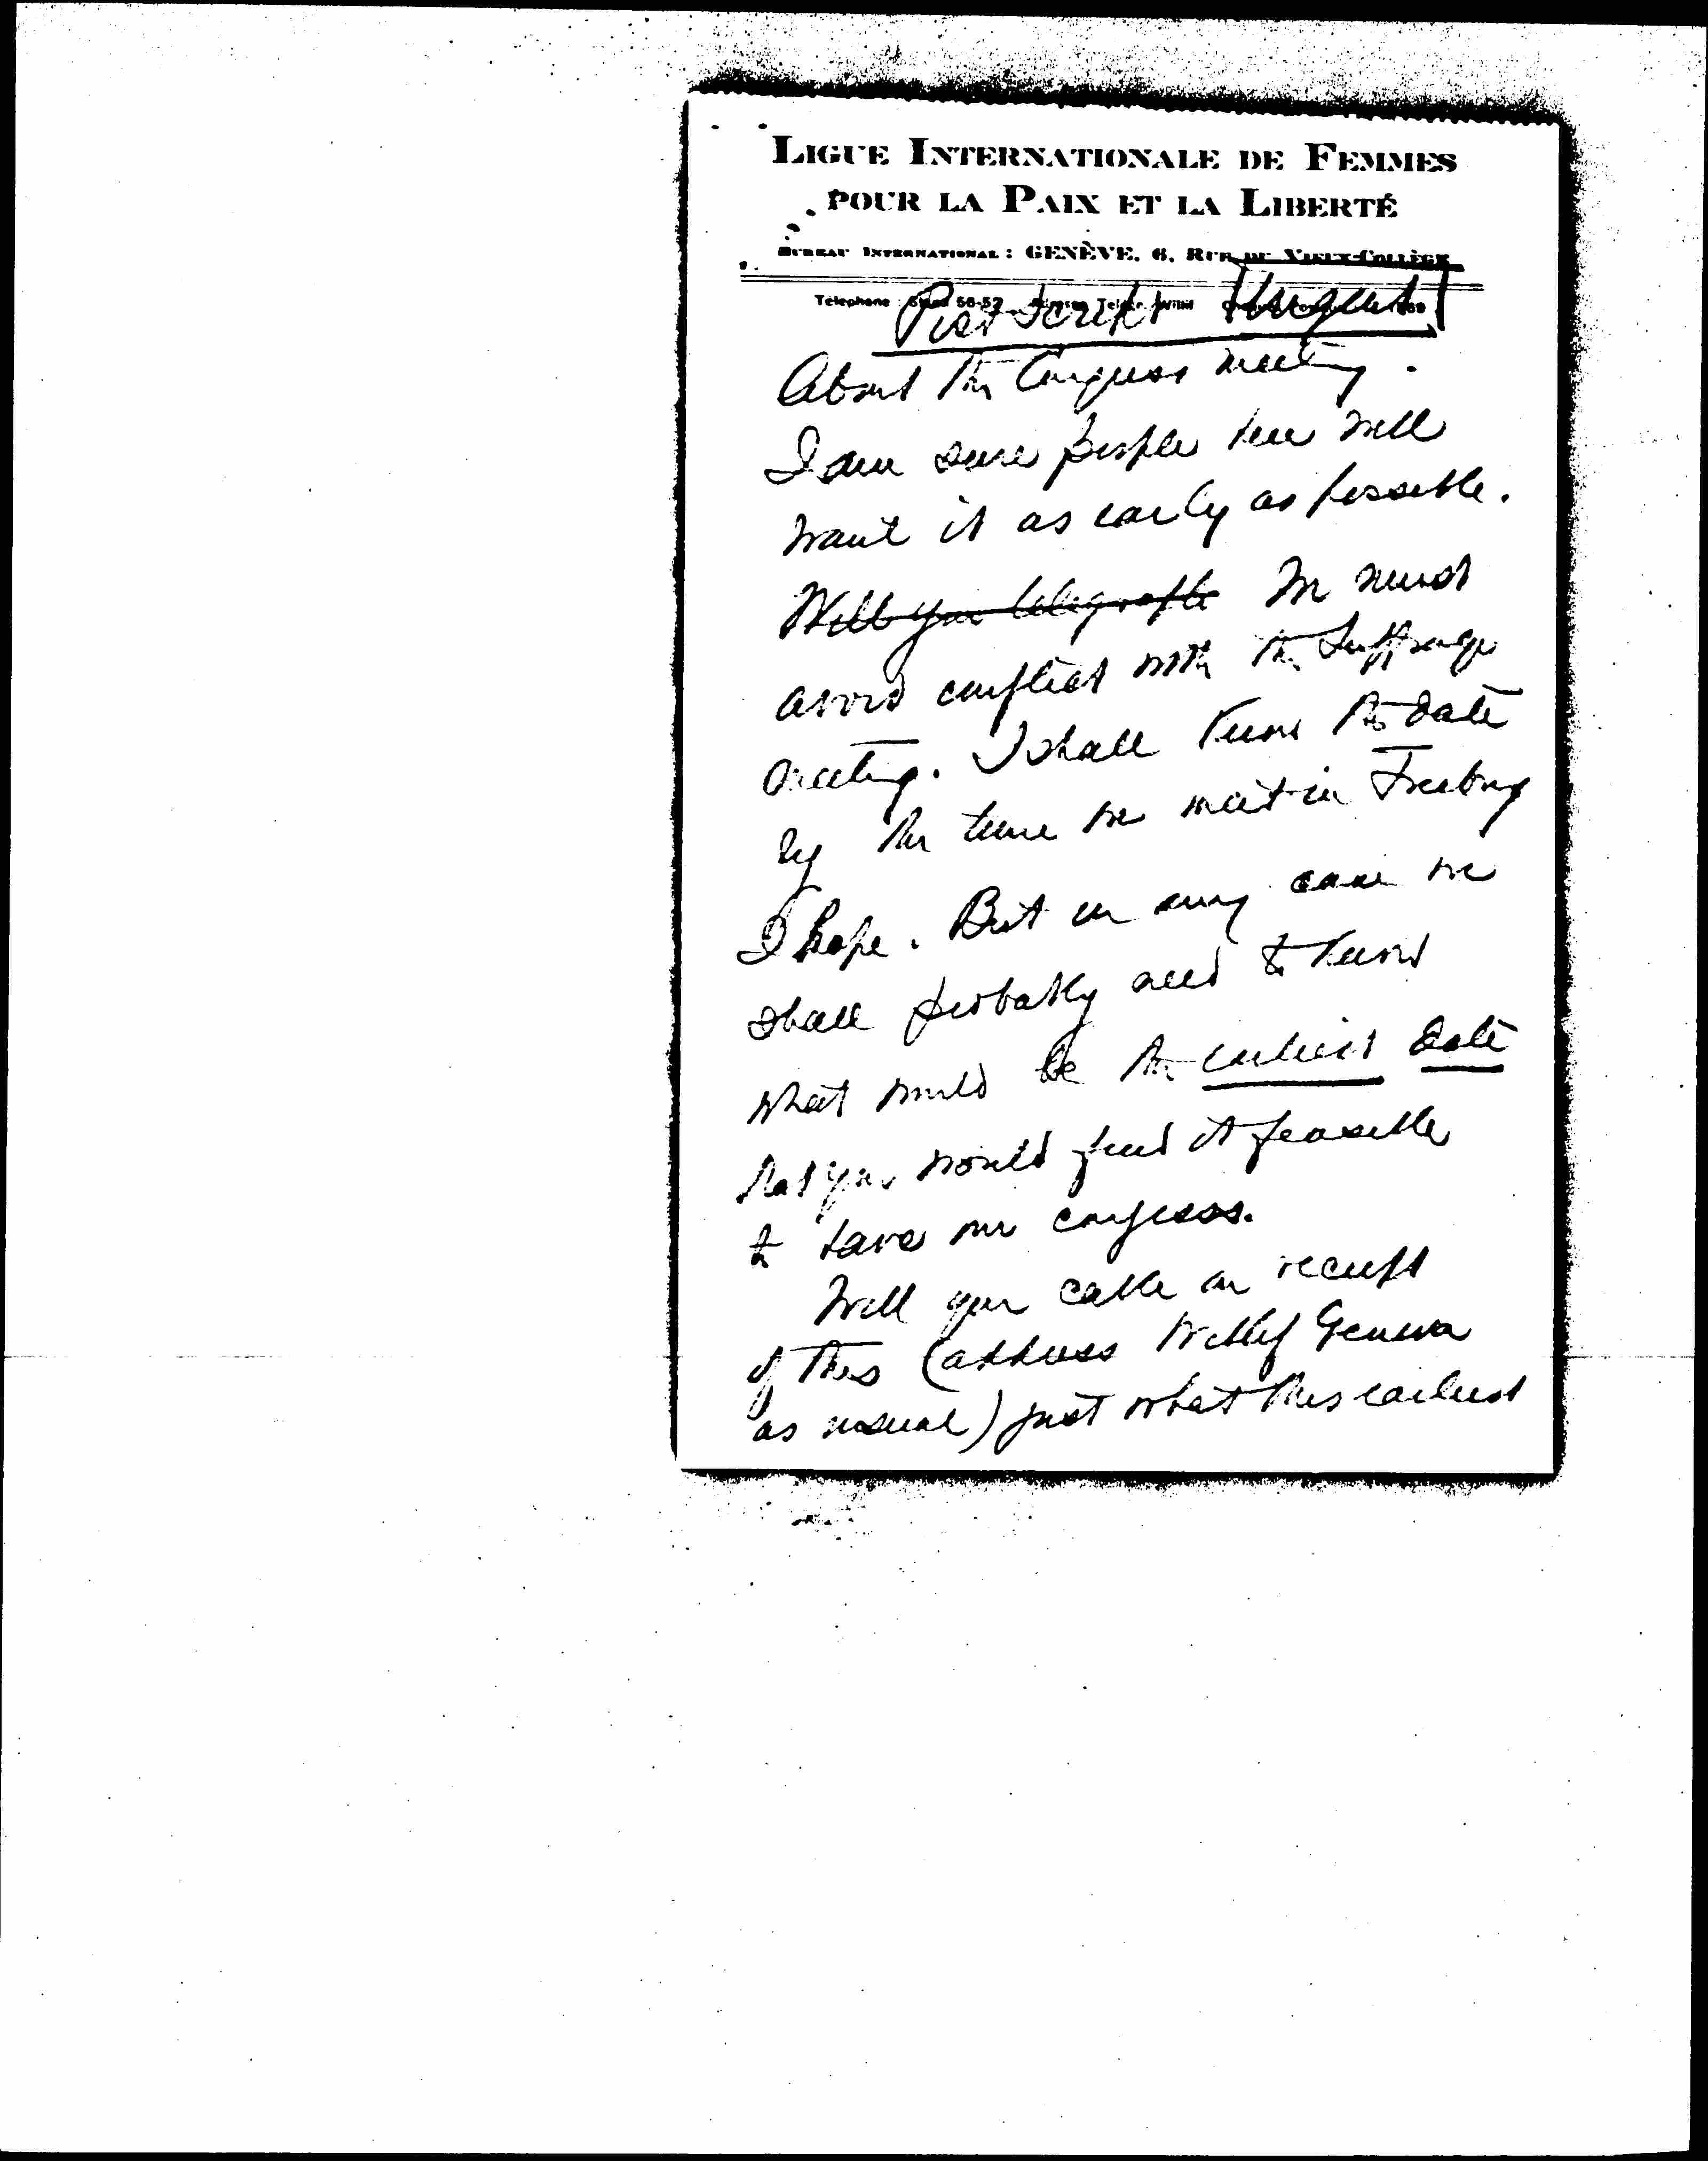 LIGUE INTERNATIONALE DE FEMMES
POUR LA PAIX ET LA LIBERTÉ
BUREAU INTERNATIONAL : GENÈVE, 6, RUE DU VIEUX-COLLÈGE
Telephone 56-52
Post Script Urgent
About the Congress meeting.
I am sure people here will
want it as early as possible.
Will you telegraph We must
avoid conflict with the Suffrage
meeting. I shall know the date
by the time we meet in Freiburg
I hope. But in any case we
shall probably need to know
what would be the earliest date
that you would find it feasible
to have our congress.
Will you cable on receipt
of this (address Willif Geneva
as usual) just what this earliest